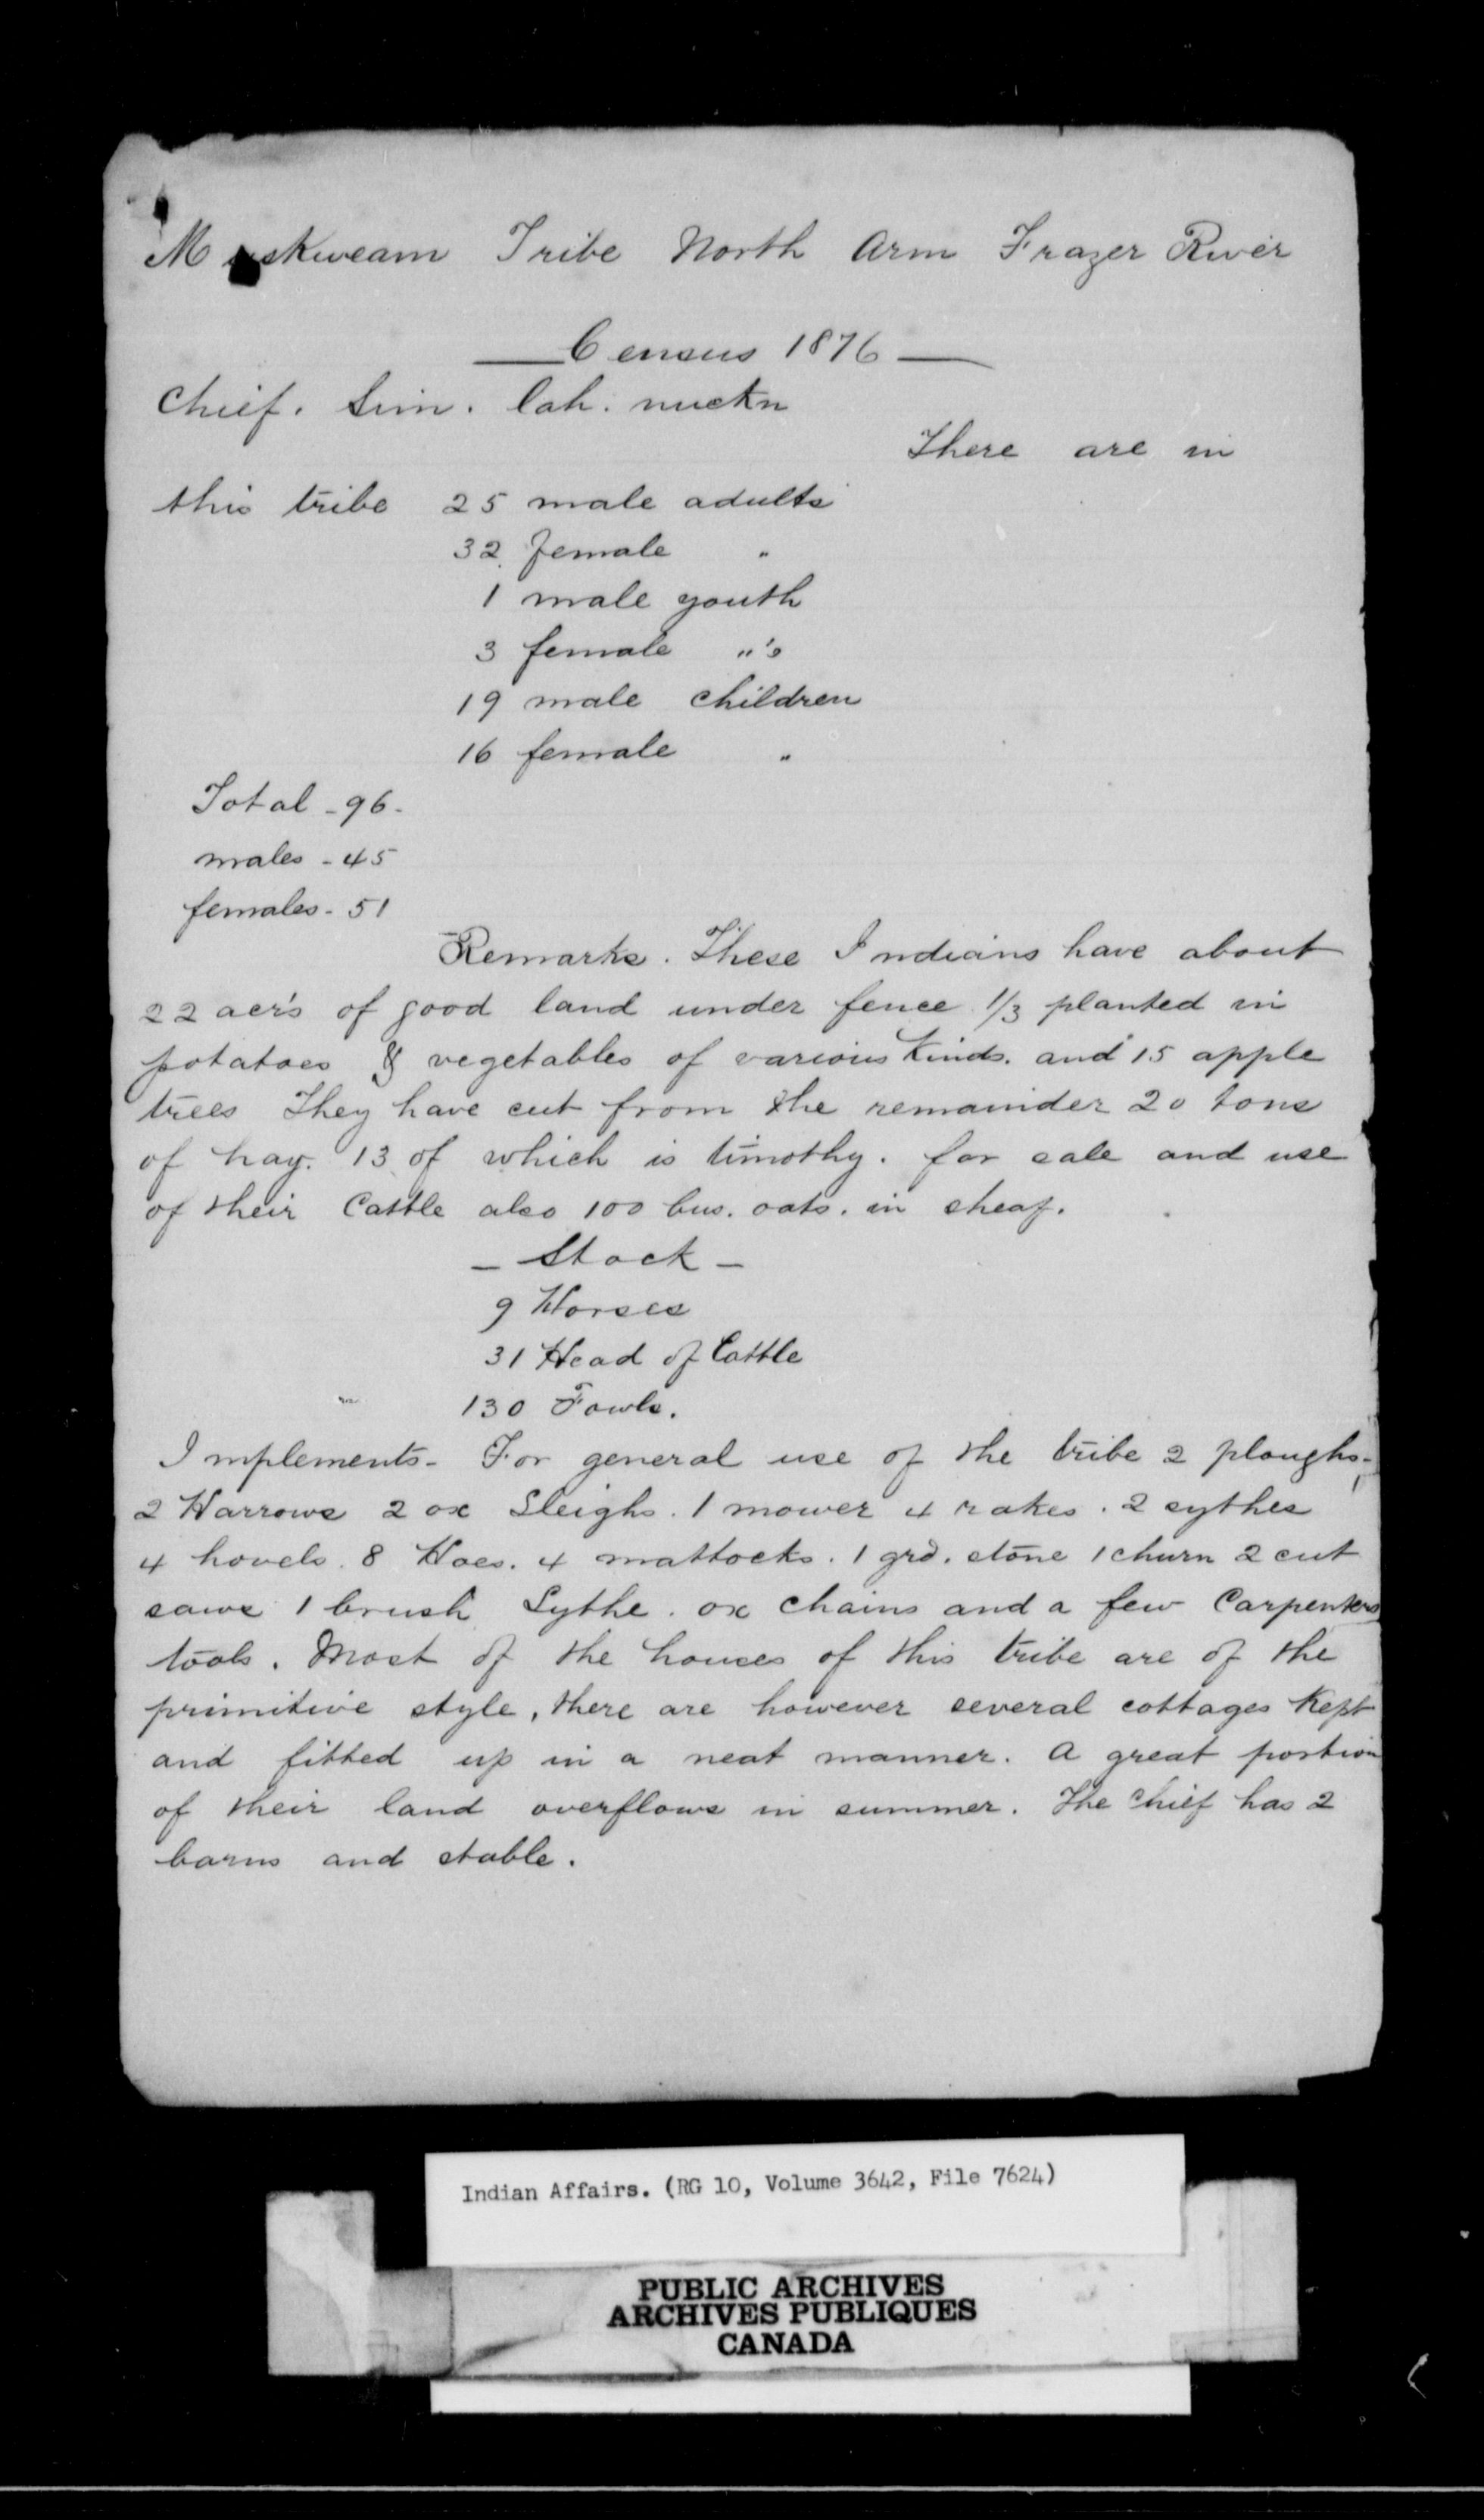 Muskweam Tribe North Arm Frazer River
Census 1876
Chief. Sim. lah. nuckn
There are in
this tribe 25 male adults
32 female "
1 male youth
3 female "'s
19 male children
16 female "
Total - 96 -
males - 45
females - 51
Remarks. These Indians have about
22 acr's of good land under fence 1/3 planted in
potatoes & vegetables of various Kinds. and 15 apple
trees They have cut from the remainder 20 tons
of hay. 13 of which is timothy. for sale and use
of their Cattle also 100 bus. oats. in sheaf.
- Stock -
9 Horses
31 Head of Cattle
130 Fowls.
Implements - For general use of the tribe 2 ploughs -
2 Harrows 2 ox Sleighs. 1 mower 4 rakes. 2 sythes
4 hovels. 8 Hoes. 4 mattocks. 1 grd. stone 1 churn 2 cut
saws 1 brush Sythe. ox chains and a few Carpenters
tools. Most of the houses of this tribe are of the
primitive style, there are however several cottages Kept
and fitted up in a neat manner. A great portion
of their land overflows in summer. The Chief has 2
barns and stable.
Indian Affairs. (RG 10, Volume 3642, File 7624)
PUBLIC ARCHIVES
ARCHIVES PUBLIQUES
CANADA